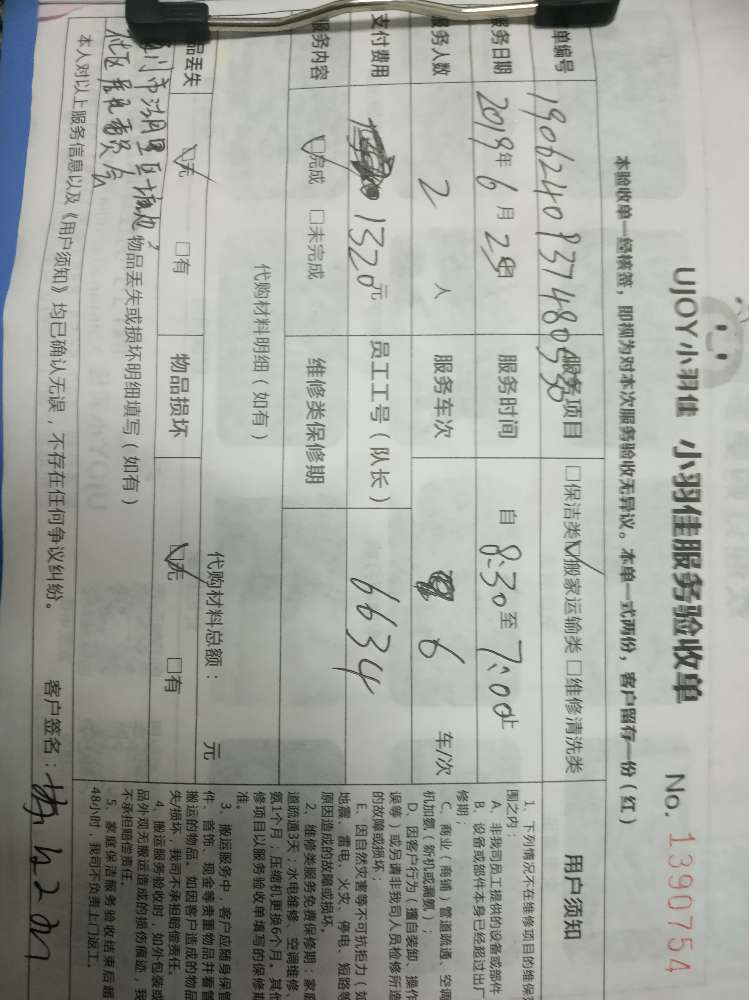 UJOY小羽佳 小羽佳服务验收单 No. 1390754
本验收单一经核签，即视为对本次服务验收无异议。本单一式两份，客户留存一份（红）
单编号 服务项目 □保洁类 ☑搬家运输类 □维修清洗类
服务日期 2019年6月25日 服务时间 自 8:30 至 7:00止
服务人数 2 人 服务车次 6 车/次
支付费用 1320元 员工工号（队长） 6634
服务内容 ☑完成 □未完成 维修类保修期
代购材料明细（如有）
代购材料总额： 元
品丢失 ☑无 □有 物品损坏 ☑无 □有
物品丢失或损坏明细填写（如有）
社区居民委员会
本人对以上服务信息以及《用户须知》均已确认无误，不存在任何争议纠纷。
客户签名：
用户须知
1、下列情况不在维修项目的维保范
围之内：
A、非我司员工提供的设备或部件
B、设备或部件本身已经超过出厂
修期；
C、商业（商铺）管道疏通、空调
机加氨（新机或漏氨）；
D、因客户行为（擅自装卸、操作
误等）或另请非我司人员检修所造
的故障或损坏；
E、因自然灾害等不可抗拒力（如
地震、雷电、火灾、停电、短路等
原因造成的故障或损坏。
2、维修类服务免费保修期：家庭
道疏通3天；水电维修、空调维修、
氨1个月；压缩机更换6个月。其他
修项目以服务验收单填写的保修期
准。
3、搬运服务中，客户应随身保管
件、首饰、现金等贵重物品并看管
搬运的物品。如因客户造成的物品
失/损坏，我司不承担赔偿责任。
4、搬运服务验收时，如外包装或
品外观无搬运造成的损伤痕迹，我
不承担赔偿责任。
5、家庭保洁服务验收结束后超
48小时，我司不负责上门返工。